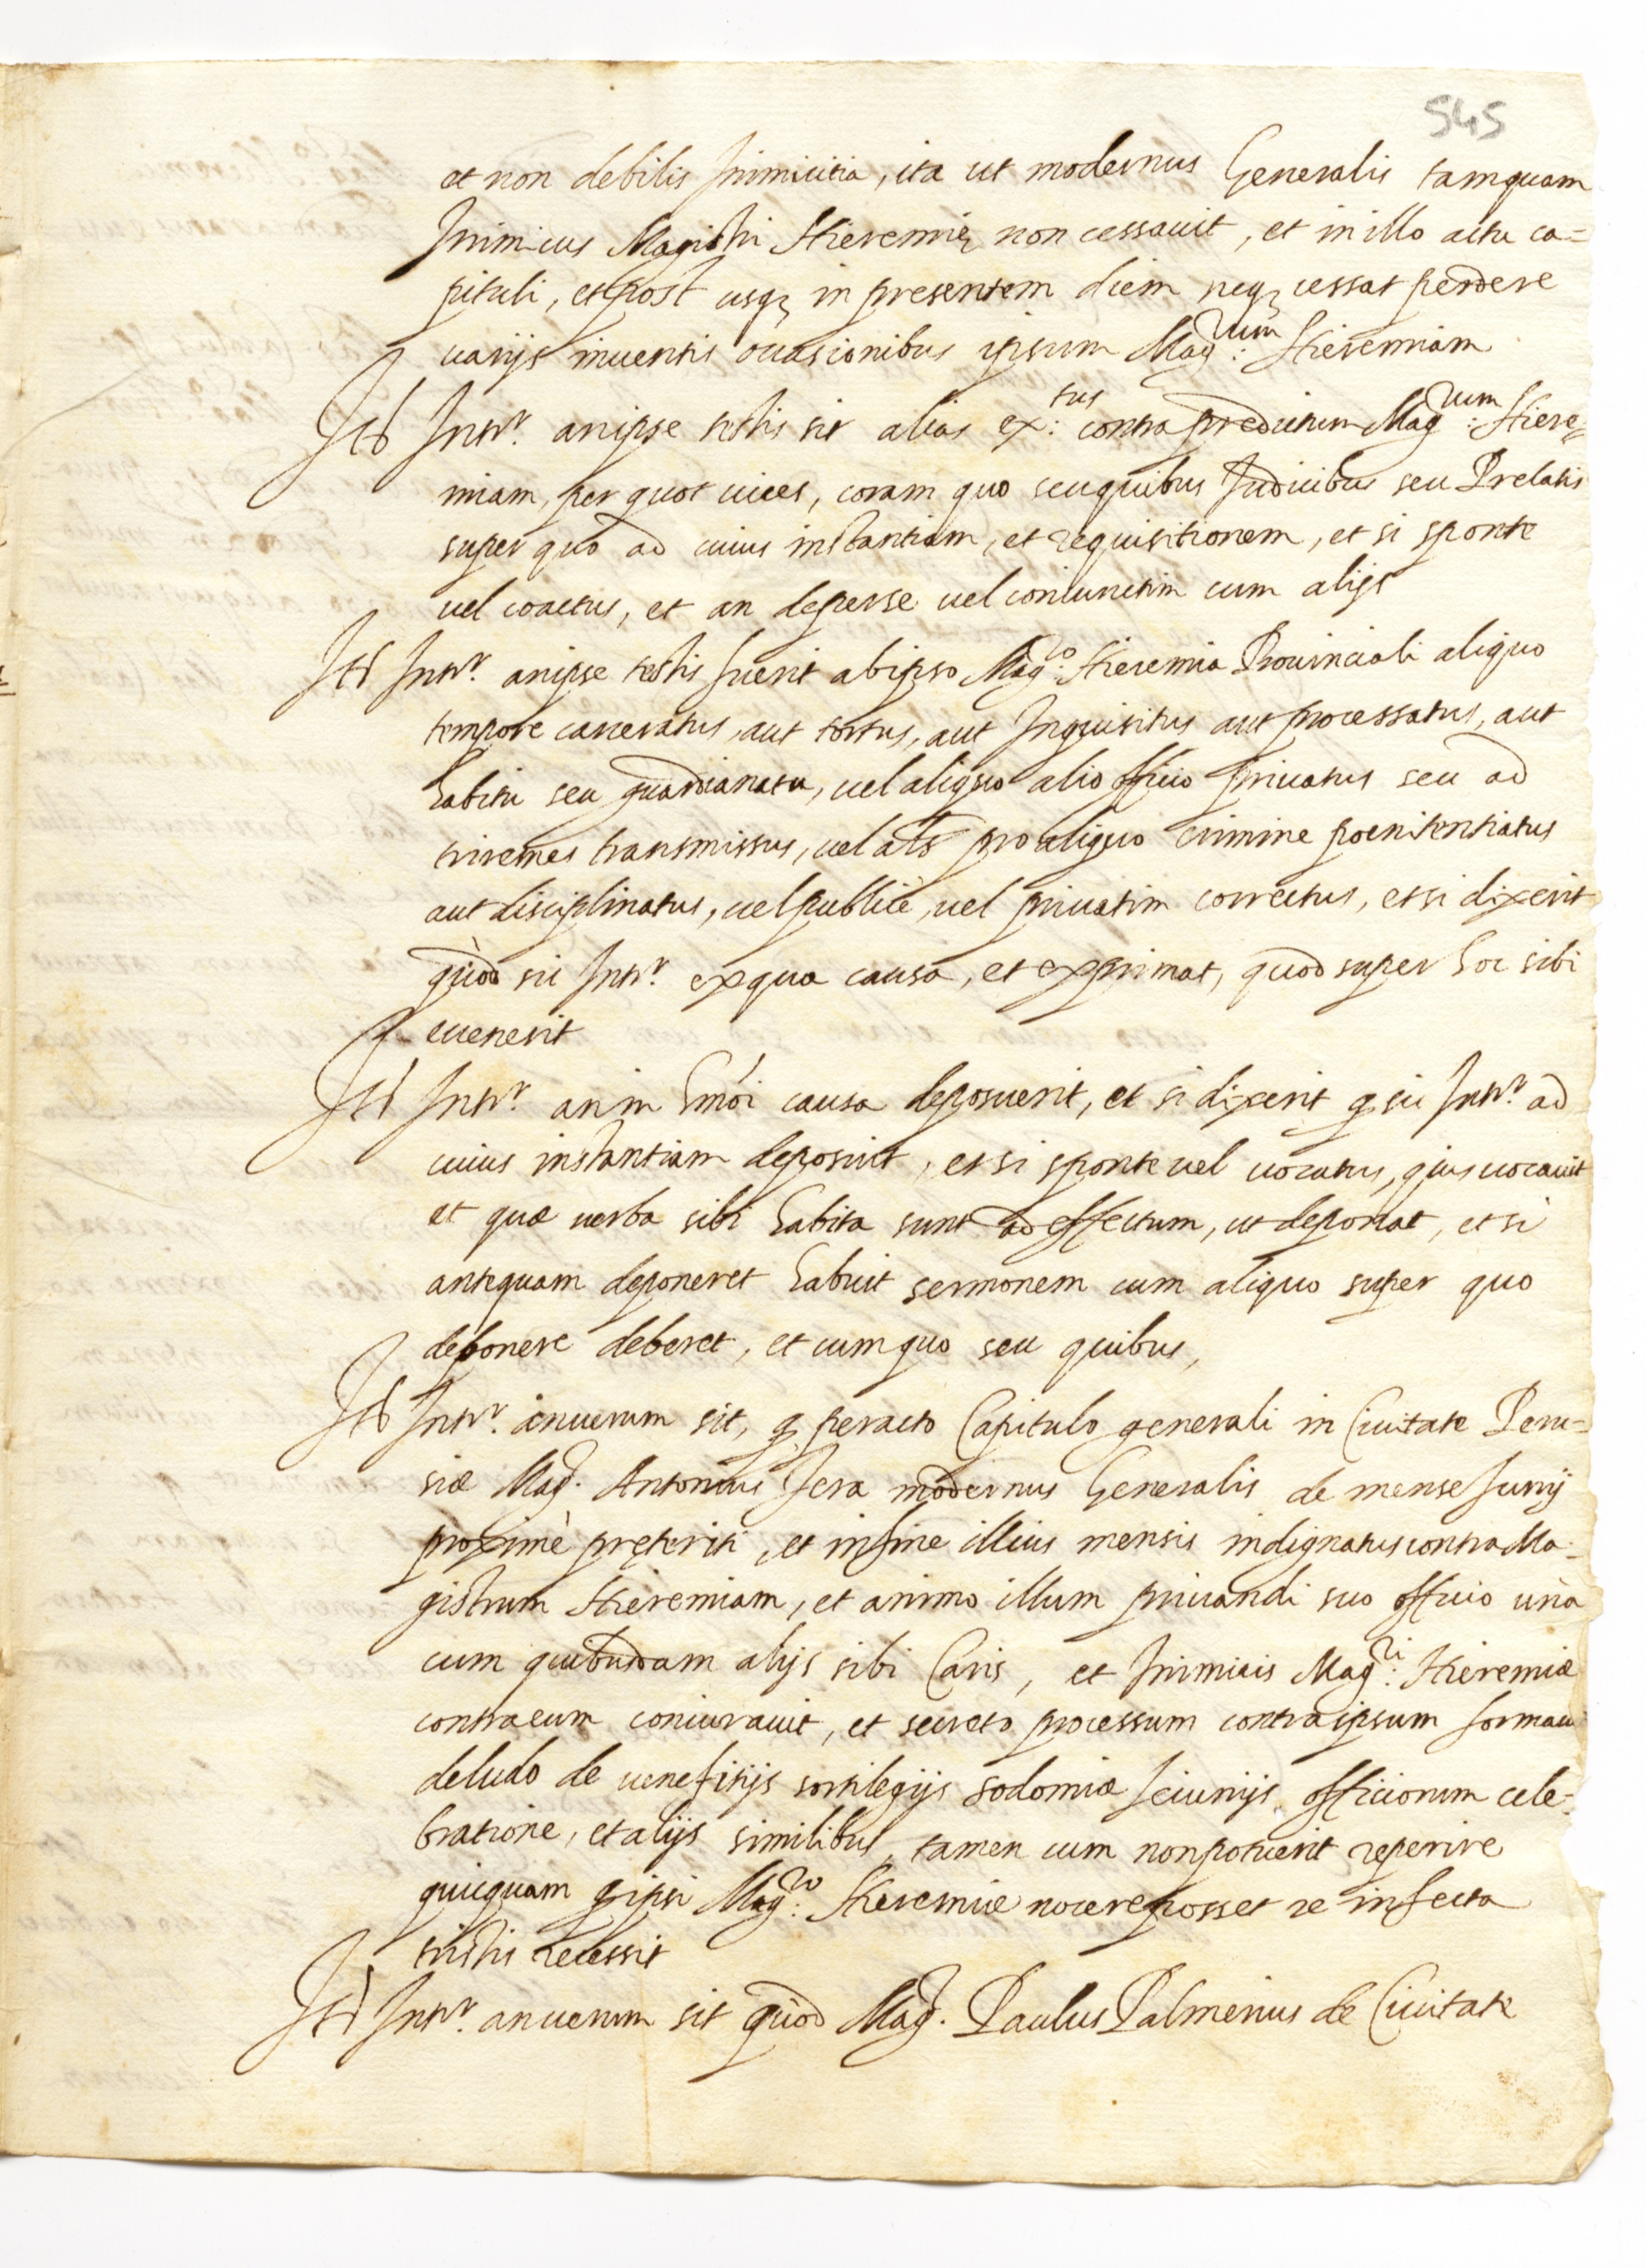 545
et non debilis Inimicitia, ita ut modernus Generalis tamquam
Inimicus Magistri Hieremię non cessauit, et in illo actu ca=
pituli, et post usq; in presentem diem neq; cessat perdere
uarijs inuentis occasionibus ipsum Mag:rum Hieremiam
Itd Intr. an ipse testis sit alias ex:tus contra predictum Mag:rum Hiere=
miam, per quot uices, coram quo seu quibus Judicibus seu Prelatis
super quo ad cuius instantiam, et requisitionem, et si sponte
uel coactus, et an de per se uel coniunctim cum alijs
Itd Intr. an ipse testis fuerit ab ipso Mag:ro Hieremia Prouinciali aliquo
tempore carceratus, aut tortus, aut Inquisitus aut processatus, aut
habitu seu guardianatu, uel aliquo alio officio priuatus seu ad
triremes transmissus, uel als pro aliquo crimine poenitentiatus
aut disciplinatus, uel publicè, uel priuatim correctus, et si dixerit
quòd sic Intr. ex qua causa, et exprimat, quod super hoc sibi
euenerit
Itd Intr. an in hmói causa deposuerit, et si dixerit q sic Intr. ad
cuius instantiam deposuit, et si sponte uel uocatus, quis uocauit
et quæ uerba sibi habita sunt ad effectum, ut deponat, et si
antequam deponeret habuit sermonem cum aliquo super quo
deponere deberet, et cum quo seu quibus,
Itd Intr. an uerum sit, q peracto Capitulo generali in Ciuitate Peru=
siæ Mag. Antonius Fera modernus Generalis de mense Junij
proximè pręteriti, et in fine illius mensis indignatus contra Ma=
gistrum Hieremiam, et animo illum priuandi suo officio unà
cum quibusdam alijs sibi Caris, et Inimicis Mag:ri Hieremiæ
contra eum coniurauit, et secreto processum contra ipsum formaui
de ludo de uenefitijs sortilegijs sodomiæ Ieiunijs officiorum cele=
bratione, et alijs similibus, tamen cum non potuerit reperire
quicquam q ipsi Mag:ro Hieremiæ nocere posset re infecta
tristis recessit
Itd Intr. an uerum sit quòd Mag. Paulus Palmerius de Ciuitate